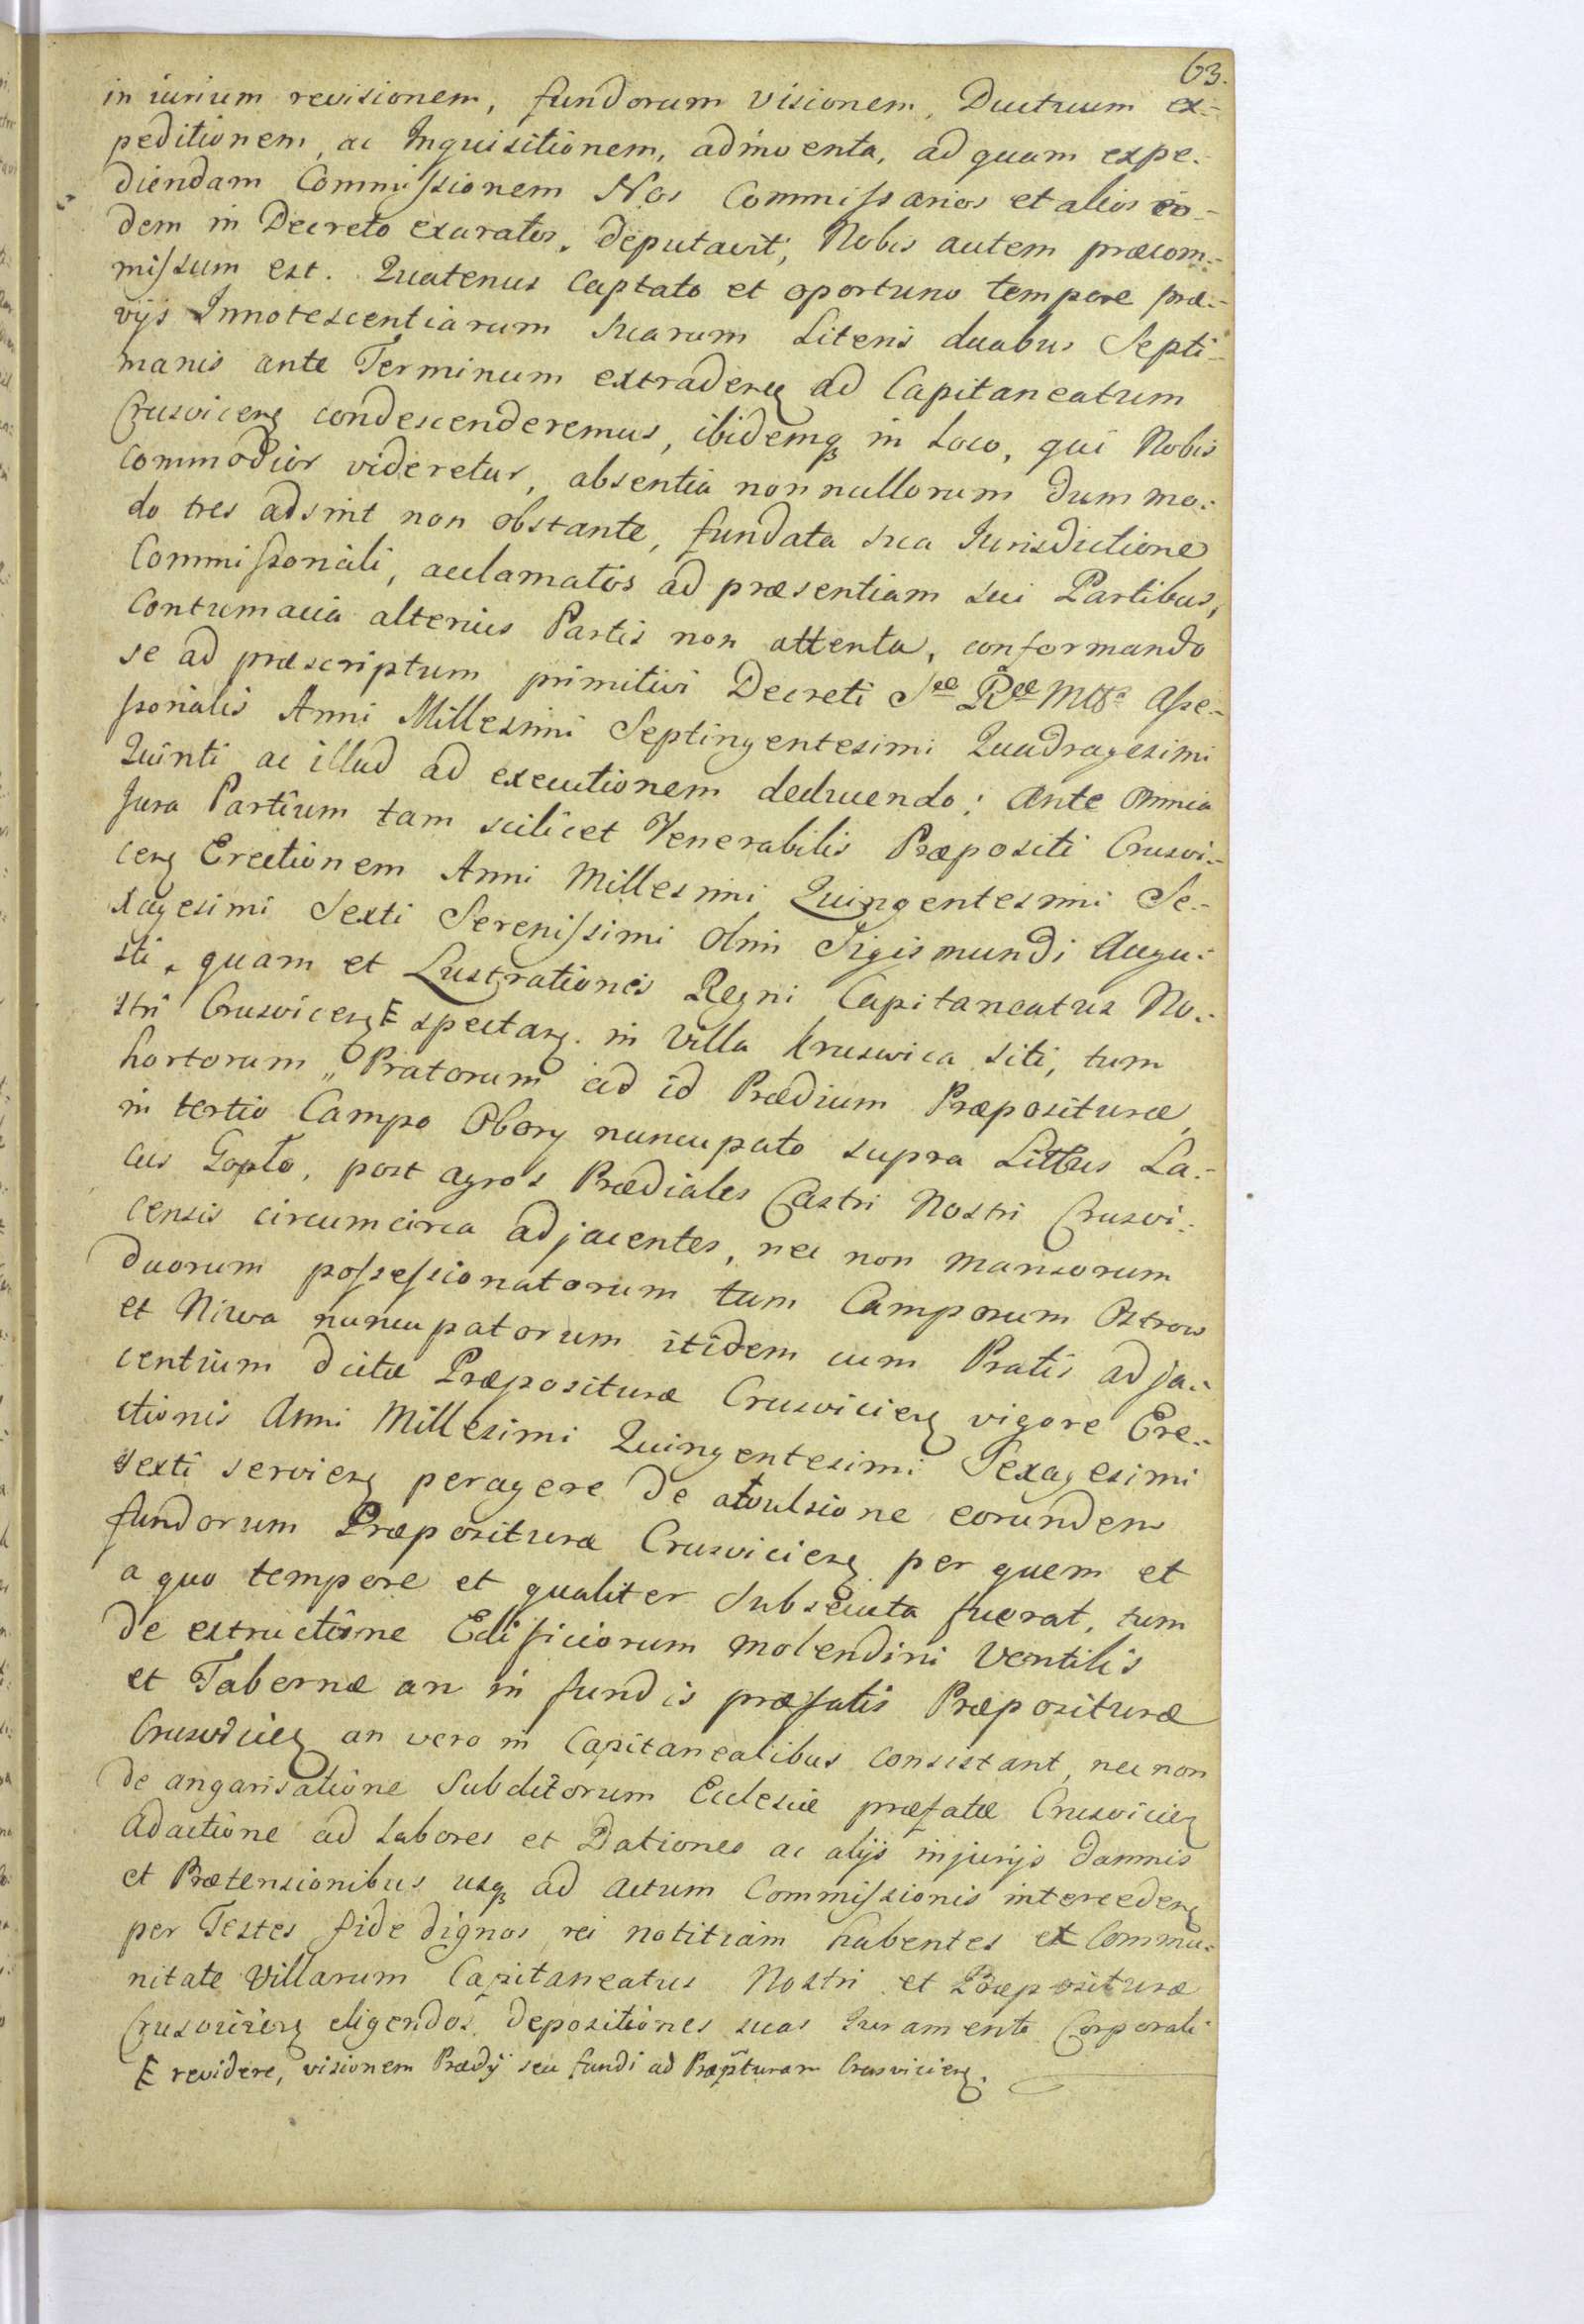 63.
in iurium revisionem, fundorum visionem, Ductuum ex:-
peditionem, ac Inquisitionem, adinventa, ad quam expe:-
diendam Commissionem Nos Commissarios et alios eo:-
dem in Decreto exaratos, deputavit; Nobis autem præcom:-
missum est. Quatenus captato et oportuno tempore præ:-
vijs Innotescentiarum suarum Literis duabus Septi:-
manis ante Terminum extraden ad Capitaneatum
Crusvicen condescenderemus, ibidemq in Loco, qui Nobis
commodior videretur, absentia nonnullorum dum mo:-
do tres adsint non obstante, fundata sua Iurisdictione
Commissoriali, acclamatis ad præsentiam sui Partibus,
contumacia alterius Partis non attenta, conformando
se ad præscriptum primitivi Decreti Sæ Ræ Mttis Asse:-
ssorialis Anni Millesimi Septingentesimi Quadragesimi
Quinti ac illud ad executionem deducendo; ante omnia
Jura Partium tam scilicet Venerabilis Præpositi Crusvi:-
cen Erectionem Anni Millesimi Quingentesimi Se:-
xagesimi Sexti Serenissimi olim Sigismundi Augu:-
sti, quam et Lustrationes Regni Capitaneatus No:-
stri Crusvicen E spectan. in Villa Kruswica siti, tum
hortorum „ Pratorum ad id Prædium Præpositura,
in tertio Campo Obory nuncupato supra Littus La:-
cus Gopło, post agros Prædiales Castri Nostri Crusvi:-
censis circumcirca adjacentes, nec non mansorum
duorum possessionatorum tum Camporum Ostrow
et Niwa nuncupatorum itidem cum Pratis adja:-
centium dictæ Præposituræ Crusvicien vigore Ere:-
ctionis Anni Millesimi Quingentesimi Sexagesimi
Sexti servien peragere de avulsione eorundem
fundorum Præposituræ Crusvicien per quem et
a quo tempore et qualiter subsecuta fuerat, tum
de extructione Edificiorum molendini Ventilis
et Tabernæ an in fundis præfatis Præposituræ
Crusvicien an vero in Capitanealibus consistant, nec non
de angarisatione Subditorum Ecclesiæ præfatæ Crusvicien
adactione ad Labores et Dationes ac alijs injurijs damnis
et Prætensionibus usq ad actum Commissionis interceden
per Testes fide dignos rei notitiam habentes ex Commu:-
nitate Villarum Capitaneatus Nostri et Præposituræ
Crusvicien eligendos depositiones suas Iuramento Corporali
E revidere, visionem Prædij seu fundi ad Præpturam Crusvicien.